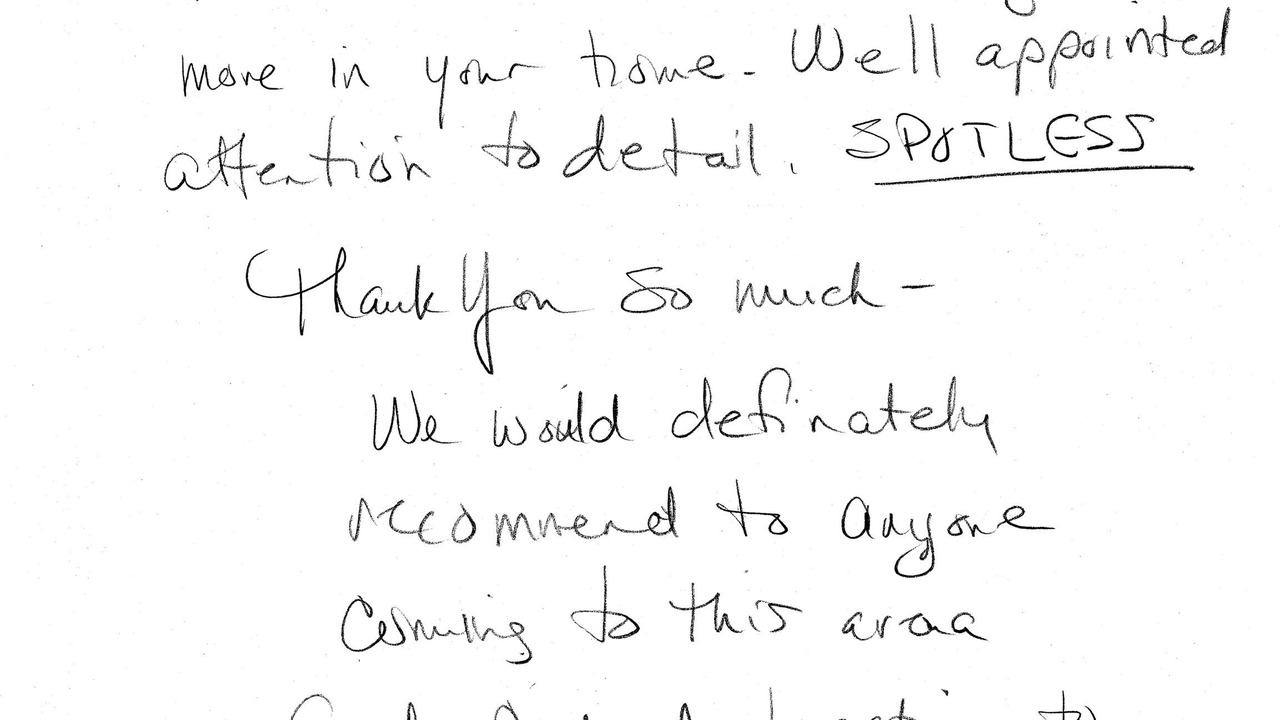 more in your home. Well appointed
attention to detail. SPOTLESS
Thank You So much -
We would definately
recommend to anyone
coming to this area
to